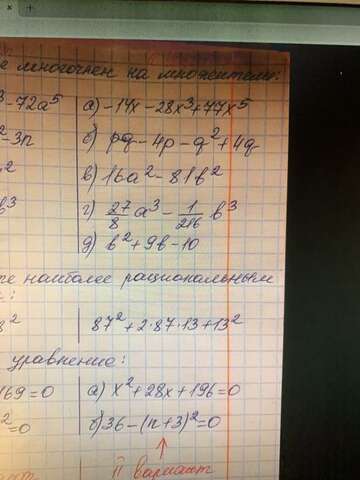 е многочлен на множители:
³-72a⁵ а) -14x-28x³+77x⁵
²-3n б) pq-4p-q²+4q
² в) 16a²-81b²
b³ г) 27/8 a³ - 1/216 b³
д) b²+9b-10
те наиболее рациональным
:
8² 87²+2·87·13+13²
уравнение:
169=0 а) x²+28x+196=0
²=0 б) 36-(n+3)²=0
ант II вариант